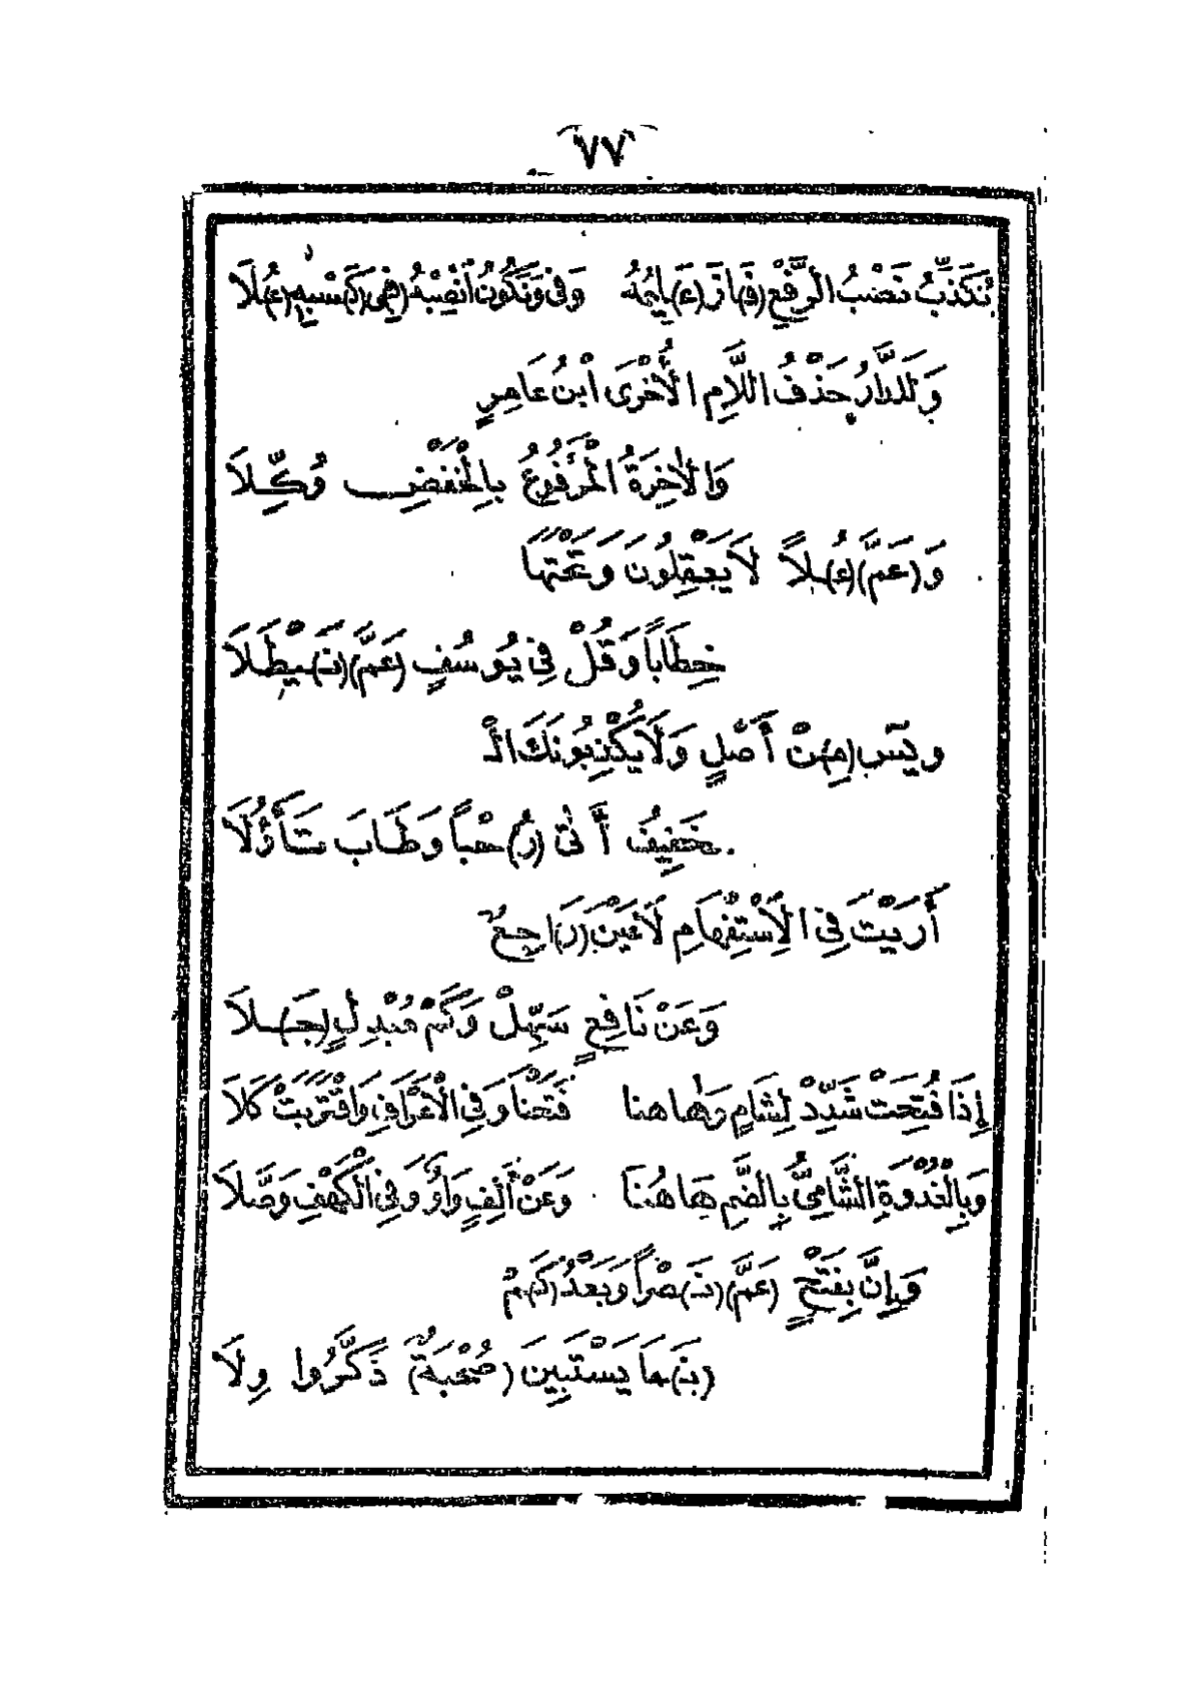 ٧٧
نُكَذِّبُ نَصْبُ الرَّفْعِ (فَـ)ـازَ (عَـ)ـلِيمُهُ وَفِى وَنَكُونُ انْصِبْهُ (فِـ)ـى (كَـ)ـسْبِهِ (عُـ)ـلَا
وَلَلدَّارُ حَذْفُ اللَّامِ الْأُخْرَى ابْنُ عَامِرٍ
وَالْآخِرَةُ الْمَرْفُوعُ بِالْخَفْضِ وُكِّلَا
وَ(عَمَّ) (عُـ)ـلاً لَا يَعْقِلُونَ وَتَحْتَهَا
خِطَاباً وَقُلْ فِى يُوسُفٍ (عَمَّ) (نَـ)ـيْطَلَا
وَيس (مِـ)ـنْ أَصْلٍ وَلَا يُكْذِبُونَكَ الْـ
ـخَفِيفُ أَتَى (رُ)حْباً وَطَابَ تَأَوُّلَا
أَرَيْتَ فِى الْاِسْتِفْهَامِ لَا عَيْنَ (رَ)اجِعٌ
وَعَنْ نَافِعٍ سَهِّلْ وَكَمْ مُبْدِلٍ (جَـ)ـلَا
إِذَا فُتِحَتْ شَدِّدْ لِشَامٍ وَهَاهُنا فَتَحْنَا وَفِى الْأَعْرَافِ وَاقْتَرَبَتْ كَلَا
وَبِالْغُدْوَةِ الشَّامِىُّ بِالضَّمِّ هَاهُنَا وَعَنْ أَلِفٍ وَاوٌ وَفِى الْكَهْفِ وَصَّلَا
وَإِنَّ بِفَتْحٍ (عَمَّ) (نَـ)ـصْراً وَبَعْدُ (كَـ)ـمْ
(نَـ)ـمَا يَسْتَبِينَ (صُحْبَةٌ) ذَكَّرُوا وِلَا